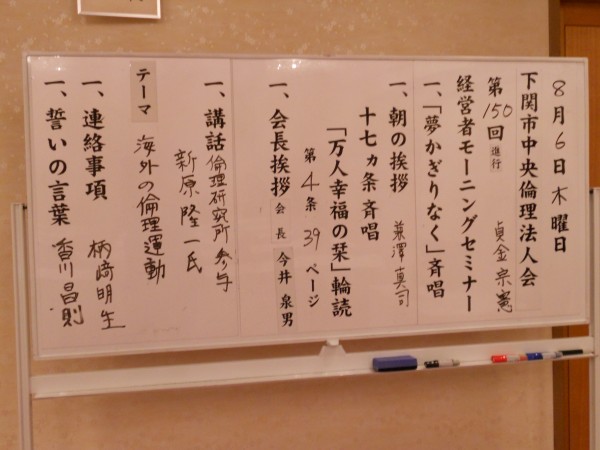 8月6日木曜日
下関市中央倫理法人会
第150回 進行 貞金宗憲
経営者モーニングセミナー
一、「夢かぎりなく」斉唱
一、朝の挨拶 兼澤真司
十七ヵ条斉唱
「万人幸福の栞」輪読
第4条39ページ
一、会長挨拶 会長 今井泉男
一、講話 倫理研究所参与
新原隆一氏
テーマ 海外の倫理運動
一、連絡事項 柄崎明生
一、誓いの言葉 香川昌則